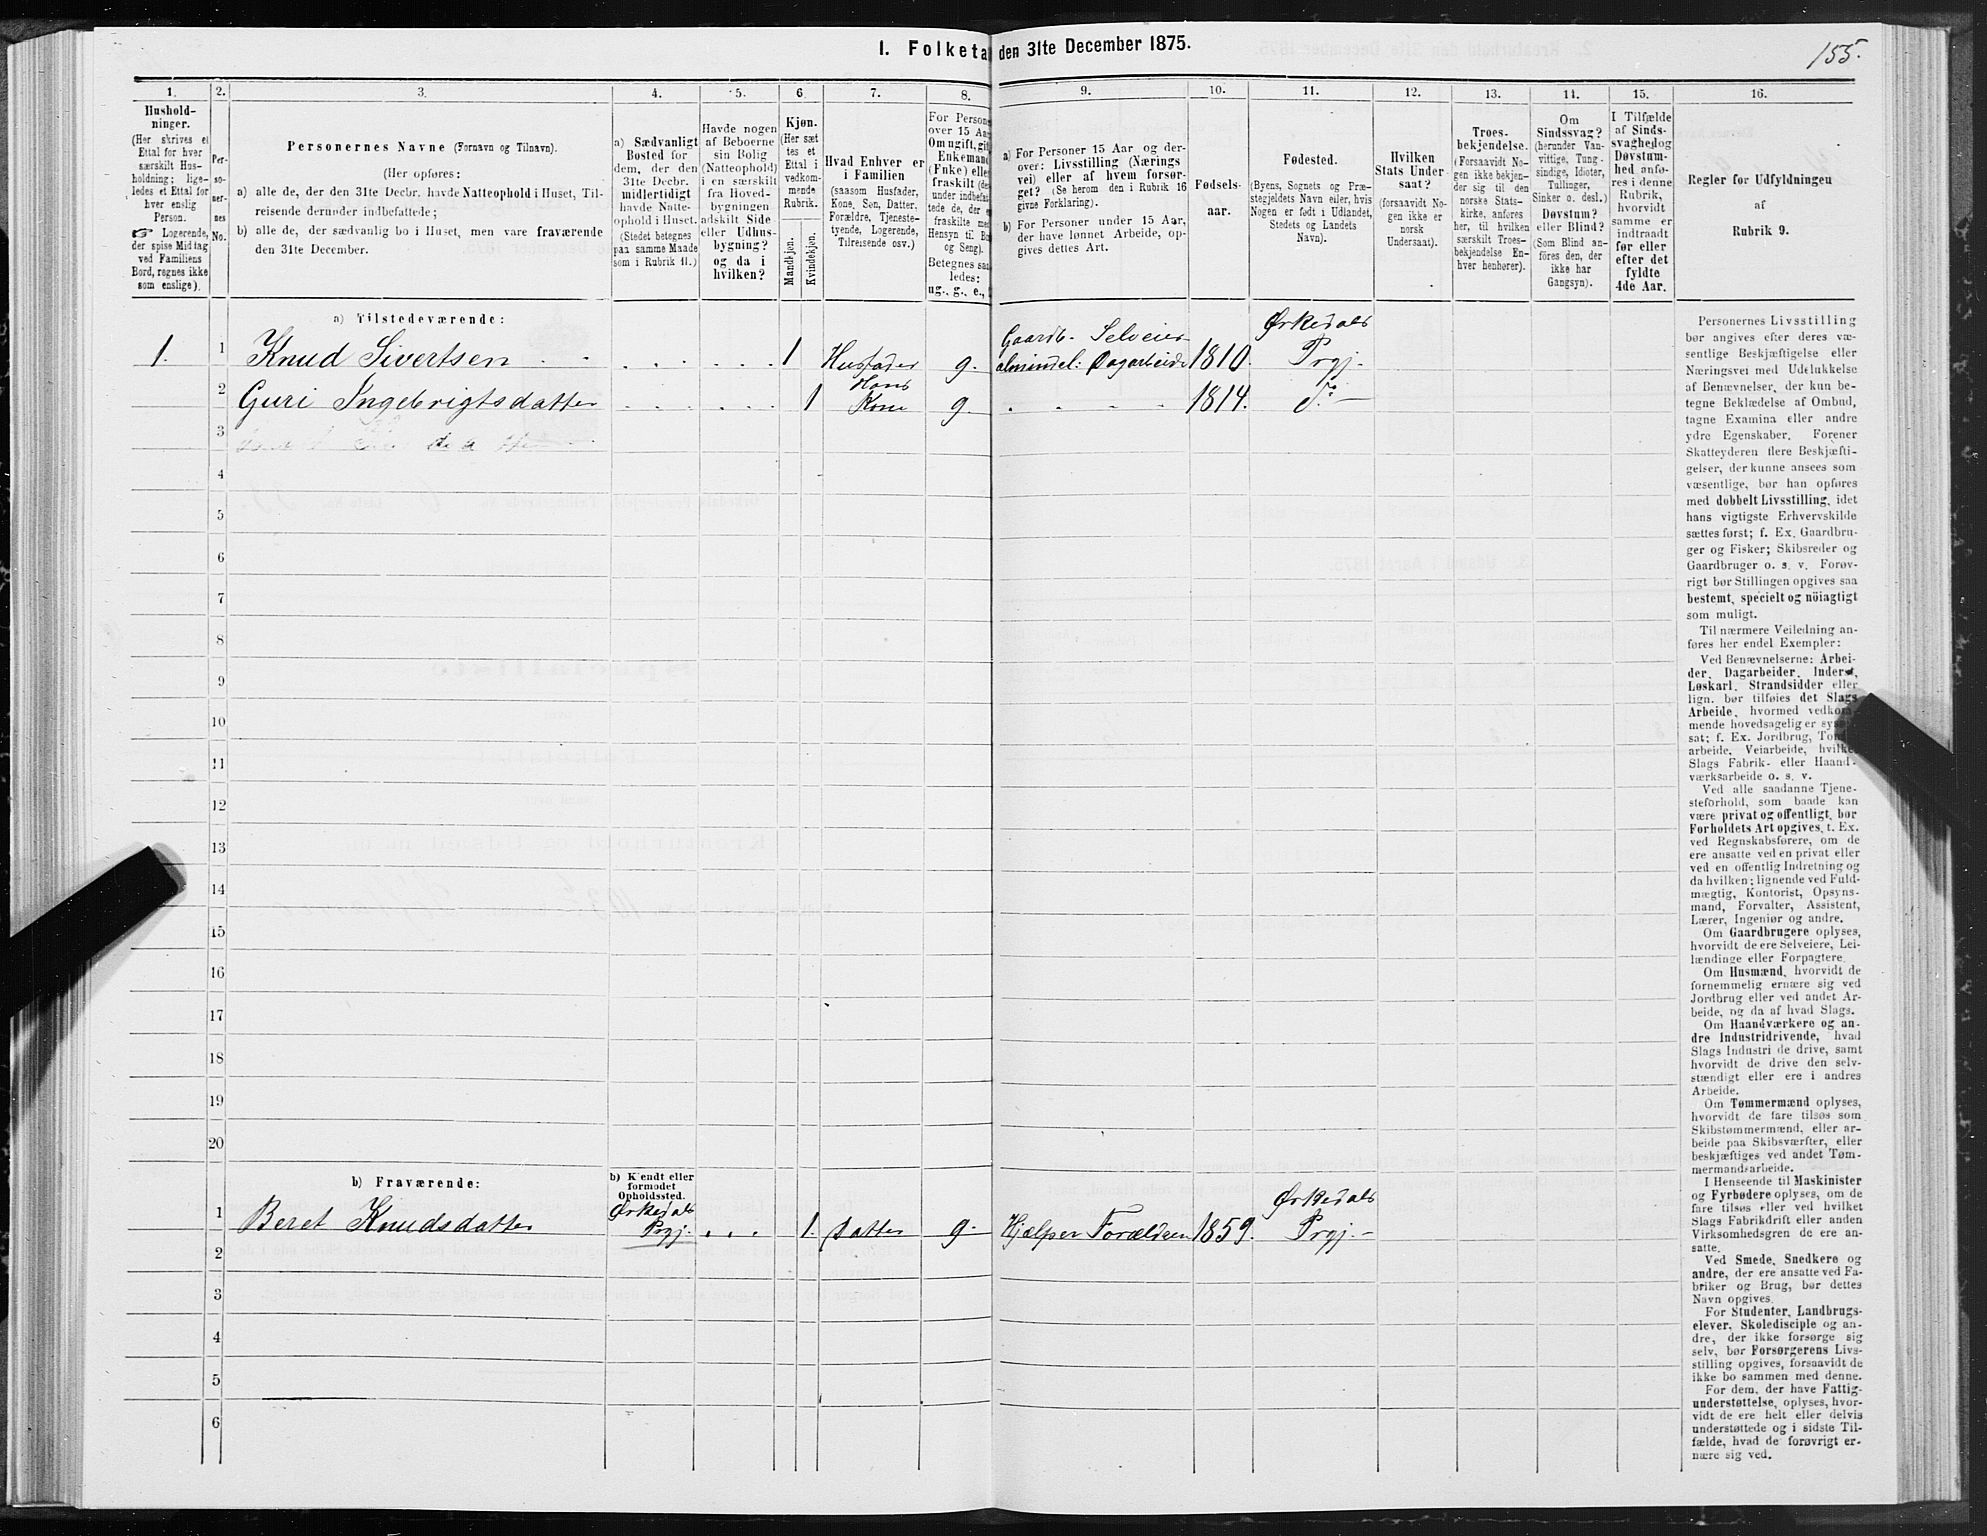 1. Folketa den 31te December 1875.
155.
1. 2. 3. 4. 5. 6. 7. 8. 9. 10. 11. 12. 13. 14. 15. 16.
Hushold-
ninger.
(Her skrives et
Ettal for hver
særskilt Hus-
holdning; lige-
ledes et Ettal for
hver enslig
Person.
☞ Logerende,
der spise Middag
ved Familiens
Bord, regnes ikke
som enslige).
Per-
so-
ner-
nes
No.
Personernes Navne (Fornavn og Tilnavn).
(Her opføres:
a) alle de, der den 31te Decbr. havde Natteophold i Huset, Til-
reisende derunder indbefattede;
b) alle de, der sædvanlig bo i Huset, men vare fraværende
den 31te December.
a) Sædvanligt
Bosted for
dem, der den
31te Decbr.
midlertidigt
havde Natte-
ophold i Huset.
(Stedet betegnes
paa samme Maade
som i Rubrik 11.)
Havde nogen
af Beboerne
sin Bolig
(Natteophold)
i en særskilt
fra Hoved-
bygningen
adskilt Side-
eller Udhus-
bygning?
og da i
hvilken?
Kjøn.
(Her sæt
tes et
Ettal i
vedkom-
mende
Rubrik.
Mandkjøn.
Kvindekjøn.
Hvad Enhver er
i Familien
(saasom Husfader,
Kone, Søn, Datter,
Forældre, Tjeneste-
tyende, Logerende,
Tilreisende osv.)
For Person
over 15 Aa
Om ugift, gif
Enkemand
(Enke) elle
fraskilt (de
under indbefat
tede de, der e
fraskilte me
Hensyn til Bo
og Seng).
Betegnes saa
ledes:
ug., g., e.,
a) For Personer 15 Aar og der-
over: Livsstilling (Nærings
vei) eller af hvem forsør-
get? (Se herom den i Rubrik 16
givne Forklaring).
b) For Personer under 15 Aar,
der have lønnet Arbeide, op-
gives dettes Art.
Fødsels-
aar.
Fødested.
(Byens, Sognets og Præ-
stegjeldets Navn eller, hvis
Nogen er født i Udlandet,
Stedets og Landets
Navn).
Hvilken
Stats Under-
saat?
(forsaavidt No-
gen ikke er
norsk
Undersaat).
Troes-
bekjendelse.
(Forsaavidt No-
gen ikke bekjen-
der sig til den
norske Stats-
kirke, anføres
her, til hvilken
særskilt Troes-
bekjendelse En-
hver henhører).
Om
Sindssvag?
(herunder Van-
vittige, Tung-
sindige, Idioter,
Tullinger,
Sinker o. desl.)
Døvstum?
eller Blind?
(Som Blind an-
föres den, der
ikke har
Gangsyn).
I Tilfælde
af Sinds-
svaghed og
Døvstum-
hed anfø-
res i denne
Rubrik,
hvorvidt
samme er
indtraadt
før eller
efter det
fyldte
4de Aar.
Regler før Udfyldningen
af
Rubrik 9.
a) Tilstedeværende:
1. 1 Knud Sivertsen 1 Husfader g. Gaardb. Selveier almindel: Dagarbeide 1810. Ørkedals Prgj.
2 Guri Ingebrigtsdatter 1 Hans Kone g. 1814. Do
3
4
5
6
7
8
9
10
11
12
13
14
15
16
17
18
19
20
b) Fraværende:
b) Kjendt eller
formodet
Opholdssted.
1 Beret Knudsdatter Ørkedals Prgj. 1 Datter g. Hjælper Forældren 1859. Ørkedals Prgj.
2
3
4
5
6
Personernes Livsstilling
bør angives efter deres væ-
sentlige Beskjæftigelse eller
Næringsvei med Udelukkelse
af Benævnelser, der kun be-
tegne Beklædelse af Ombud,
tagne Examina eller andre
ydre Egenskaber. Forener
Skatteyderen flere Beskjæfti-
gelser, der kunne ansees som
væsentlige, bør han opføres
med dobbelt Livsstilling, idet
hans vigtigste Erhvervskilde
sættes først; f. Ex. Gaardbru-
ger og Fisker; Skibsreder og
Gaardbruger o. s. v. Forøv-
rigt bør Stillingen opgives saa
bestemt, specielt og nöiagtigt
som muligt.
Til nærmere Veiledning an-
føres her endel Exempler:
Ved Benævnelserne: Arbei-
der, Dagarbeider, Inderst,
Løskarl, Strandsidder eller
lign. bør tilføies det Slags
Arbeide, hvormed vedkom-
mende hovedsagelig er syssel-
sat; f. Ex. Jordbrug, Tomt-
arbeide, Veiarbeide, hvilket
Slags Fabrik- eller Haand-
værksarbeide o. s. v.
Ved alle saadanne Tjene-
steforhold, som baade kan
være privat og offentligt, bør
Forholdets Art opgives, t. Ex.
ved Regnskabsførere, om de
ere ansatte ved en privat eller
ved en offentlig Indretning og
da hvilken; lignende ved Fuld-
mægtig, Kontorist, Opsyns-
mand, Forvalter, Assistent,
Lærer, Ingeniør og andre.
Om Gaardbrugere oplyses,
hvorvidt de ere Selveiere, Lei-
lændinge eller Forpagtere.
Om Husmænd, hvorvidt de
fornemmelig ernære sig ved
Jordbrug eller ved andet Ar-
beide, og da af hvad Slags.
Om Haandværkere og an-
dre Industridrivende, hvad
Slags Industri de drive, samt
hvorvidt de drive den selv-
stændigt eller ere i andres
Arbeide.
Om Tømmermænd oplyses,
hvorvidt de fare tilsøs som
Skibstømmermænd, eller ar-
beide paa Skibsværfter, eller
beskjæftiges ved andet Tøm-
mermandsarbeide.
I Henseende til Maskinister
og Fyrbødere oplyses, om de
fare tilsøs eller ved hvilket
Slags Fabrikdrift eller anden
Virksomhedsgren de ere an-
satte.
Ved Smede, Snedkere og
andre, der ere ansatte ved Fa-
briker og Brug, bør dettes
Navn opgives.
For Studenter, Landbrugs-
elever, Skoledisciple og an-
dre, der ikke forsørge sig
selv, bør Forsørgerens Livs-
stilling opgives, forsaavidt de
ikke bo sammen med denne.
For dem, der have Fattig-
understøttelse, oplyses, hvor-
vidt de ere helt eller delvis
understøttede og i sidste Til-
fælde, hvad de forøvrigt er-
nære sig ved.